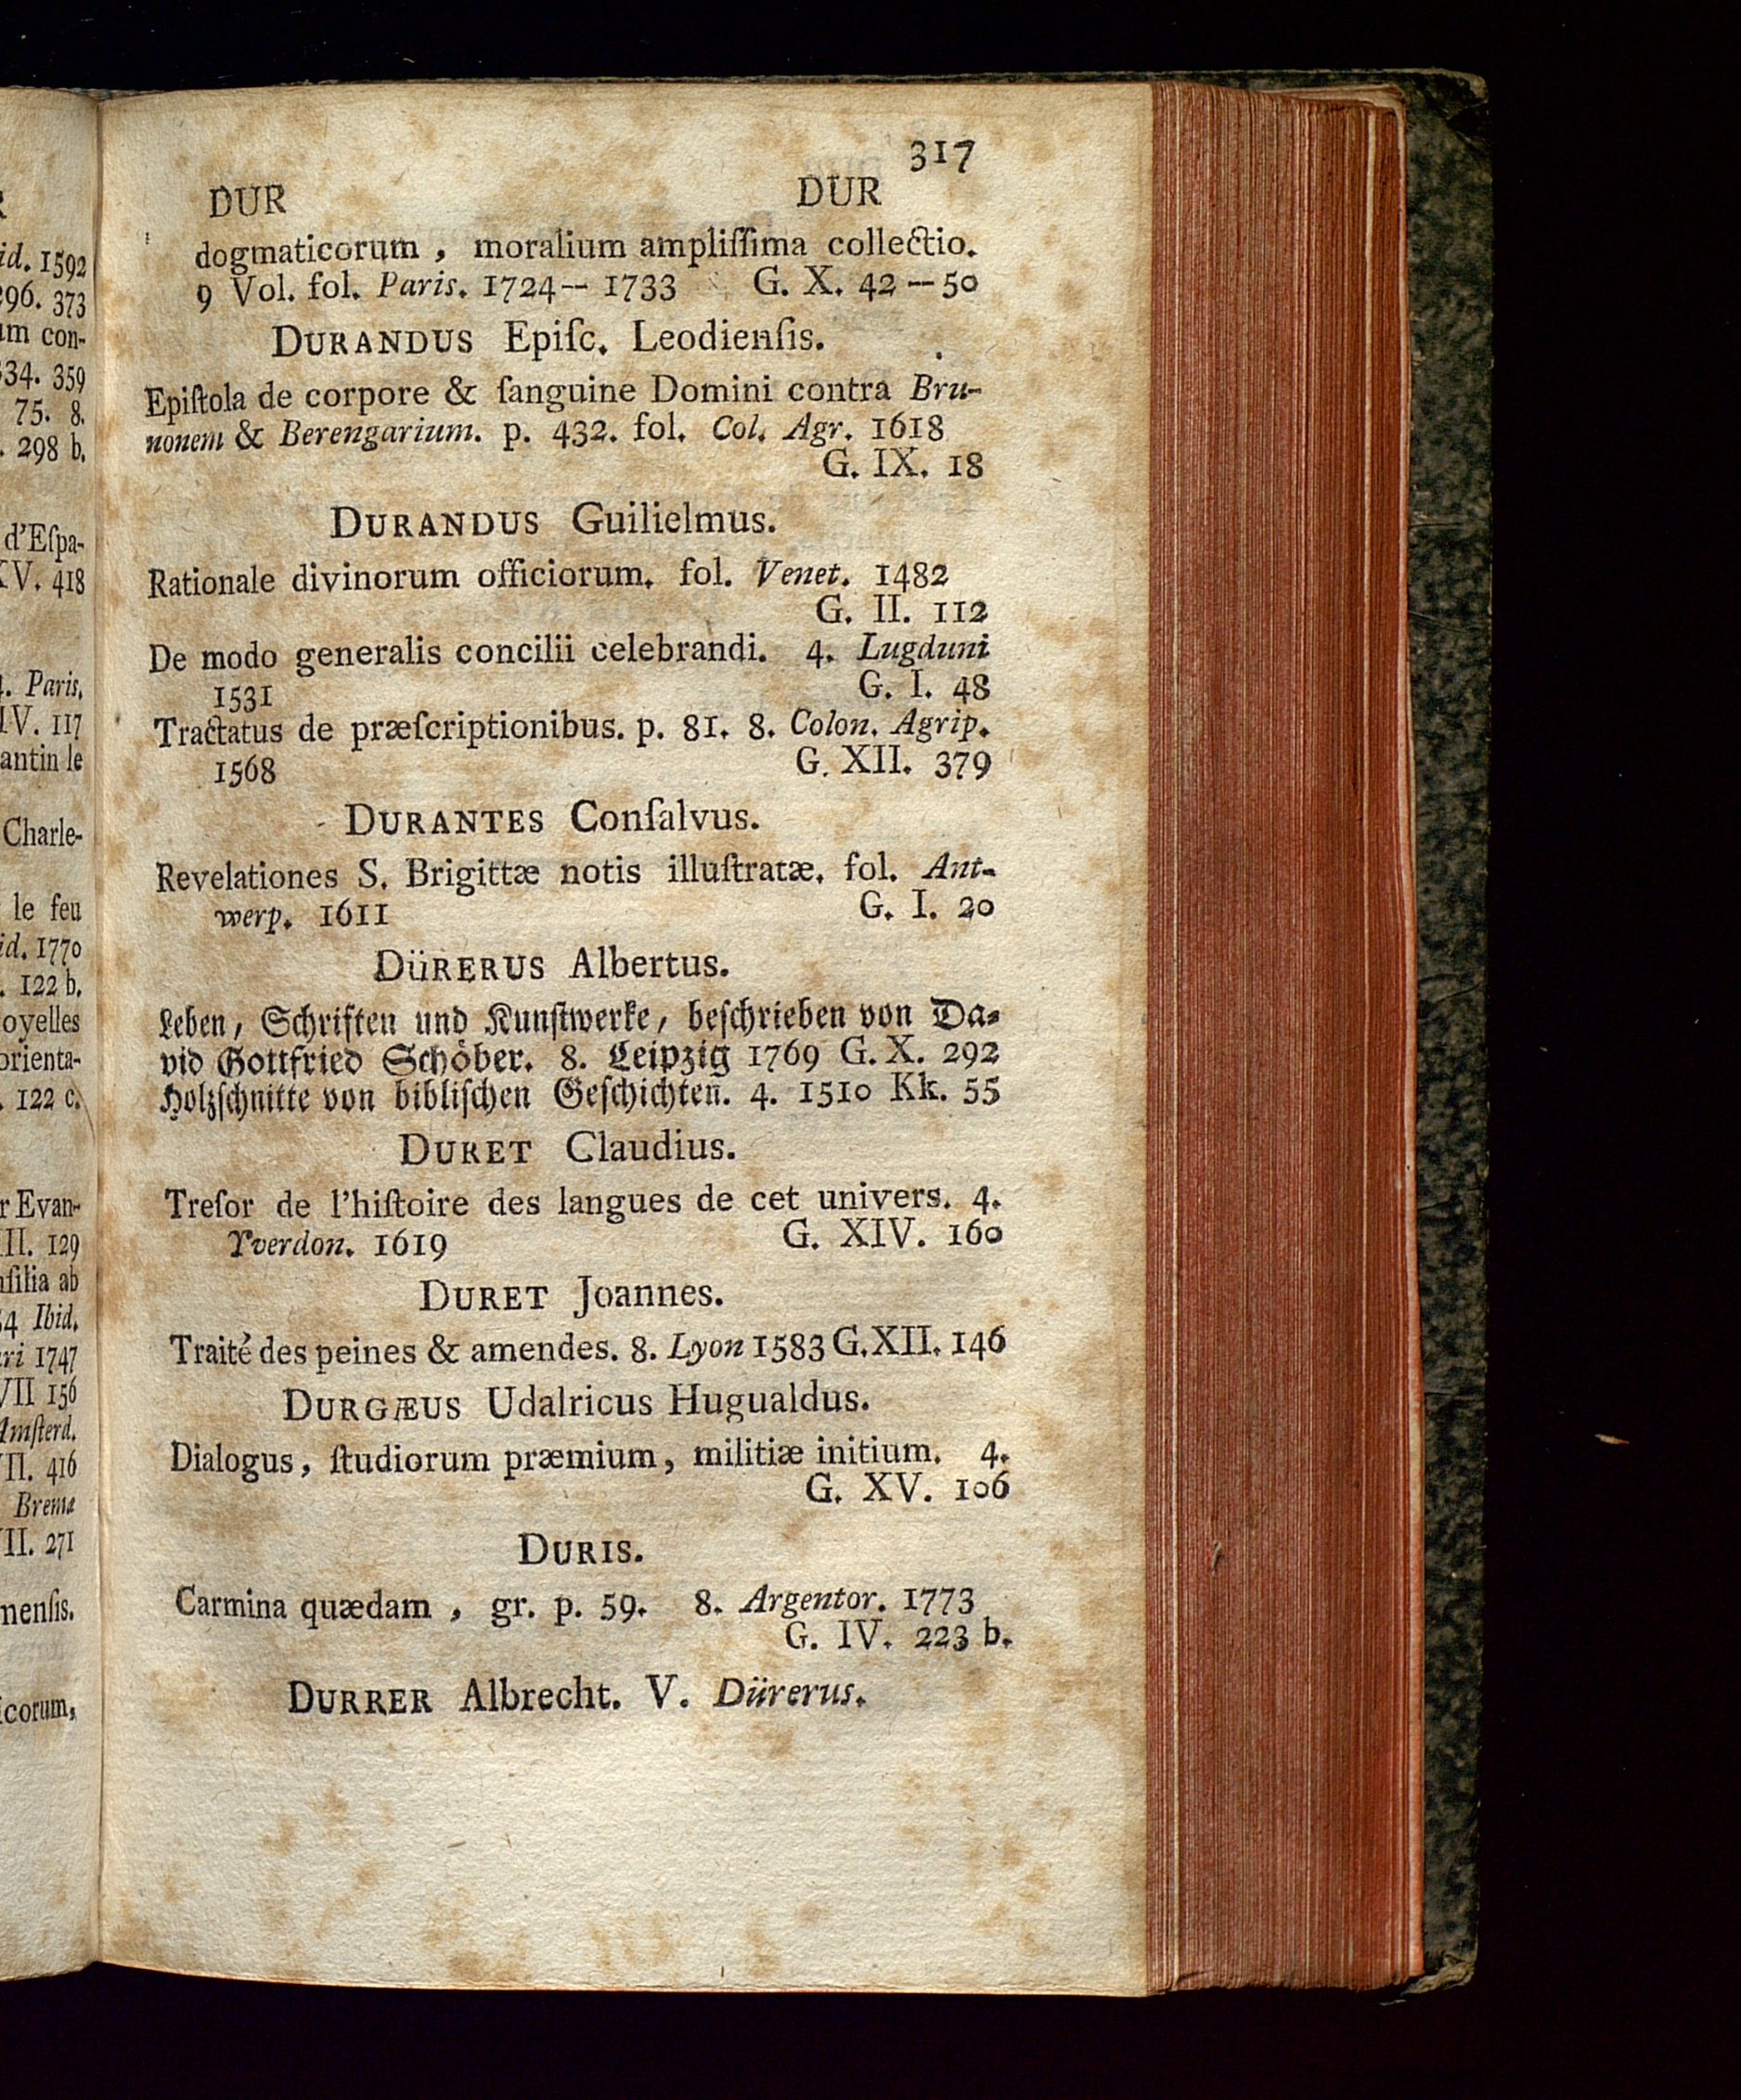 317
DUR DUR
dogmaticorum, moralium ampliſſima collectio.
9 Vol. fol. Paris. 1724 — 1733 G. X. 42 — 50
DURANDUS Epiſc. Leodienſis.
Epiſtola de corpore & ſanguine Domini contra Bru-
nonem & Berengarium. p. 432. fol. Col. Agr. 1618
G. IX. 18
DURANDUS Guilielmus.
Rationale divinorum officiorum. fol. Venet. 1482
G. II. 112
De modo generalis concilii celebrandi. 4. Lugduni
1531 G. I. 48
Tractatus de præſcriptionibus. p. 81. 8. Colon. Agrip.
1568 G. XII. 379
DURANTES Conſalvus.
Revelationes S. Brigittæ notis illuſtratæ. fol. Ant-
werp. 1611 G. I. 20
DüRERUS Albertus.
Leben, Schriften und Kunſtwerke, beſchrieben von Da-
vid Gottfried Schöber. 8. Leipzig 1769 G. X. 292
Holzſchnitte von bibliſchen Geſchichten. 4. 1510 Kk. 55
DURET Claudius.
Treſor de l'hiſtoire des langues de cet univers. 4.
Yverdon. 1619 G. XIV. 160
DURET Joannes.
Traité des peines & amendes. 8. Lyon 1583 G. XII. 146
DURGÆUS Udalricus Hugualdus.
Dialogus, ſtudiorum præmium, militiæ initium. 4.
G. XV. 106
DURIS.
Carmina quædam, gr. p. 59. 8. Argentor. 1773
G. IV. 223 b.
DURRER Albrecht. V. Dürerus.